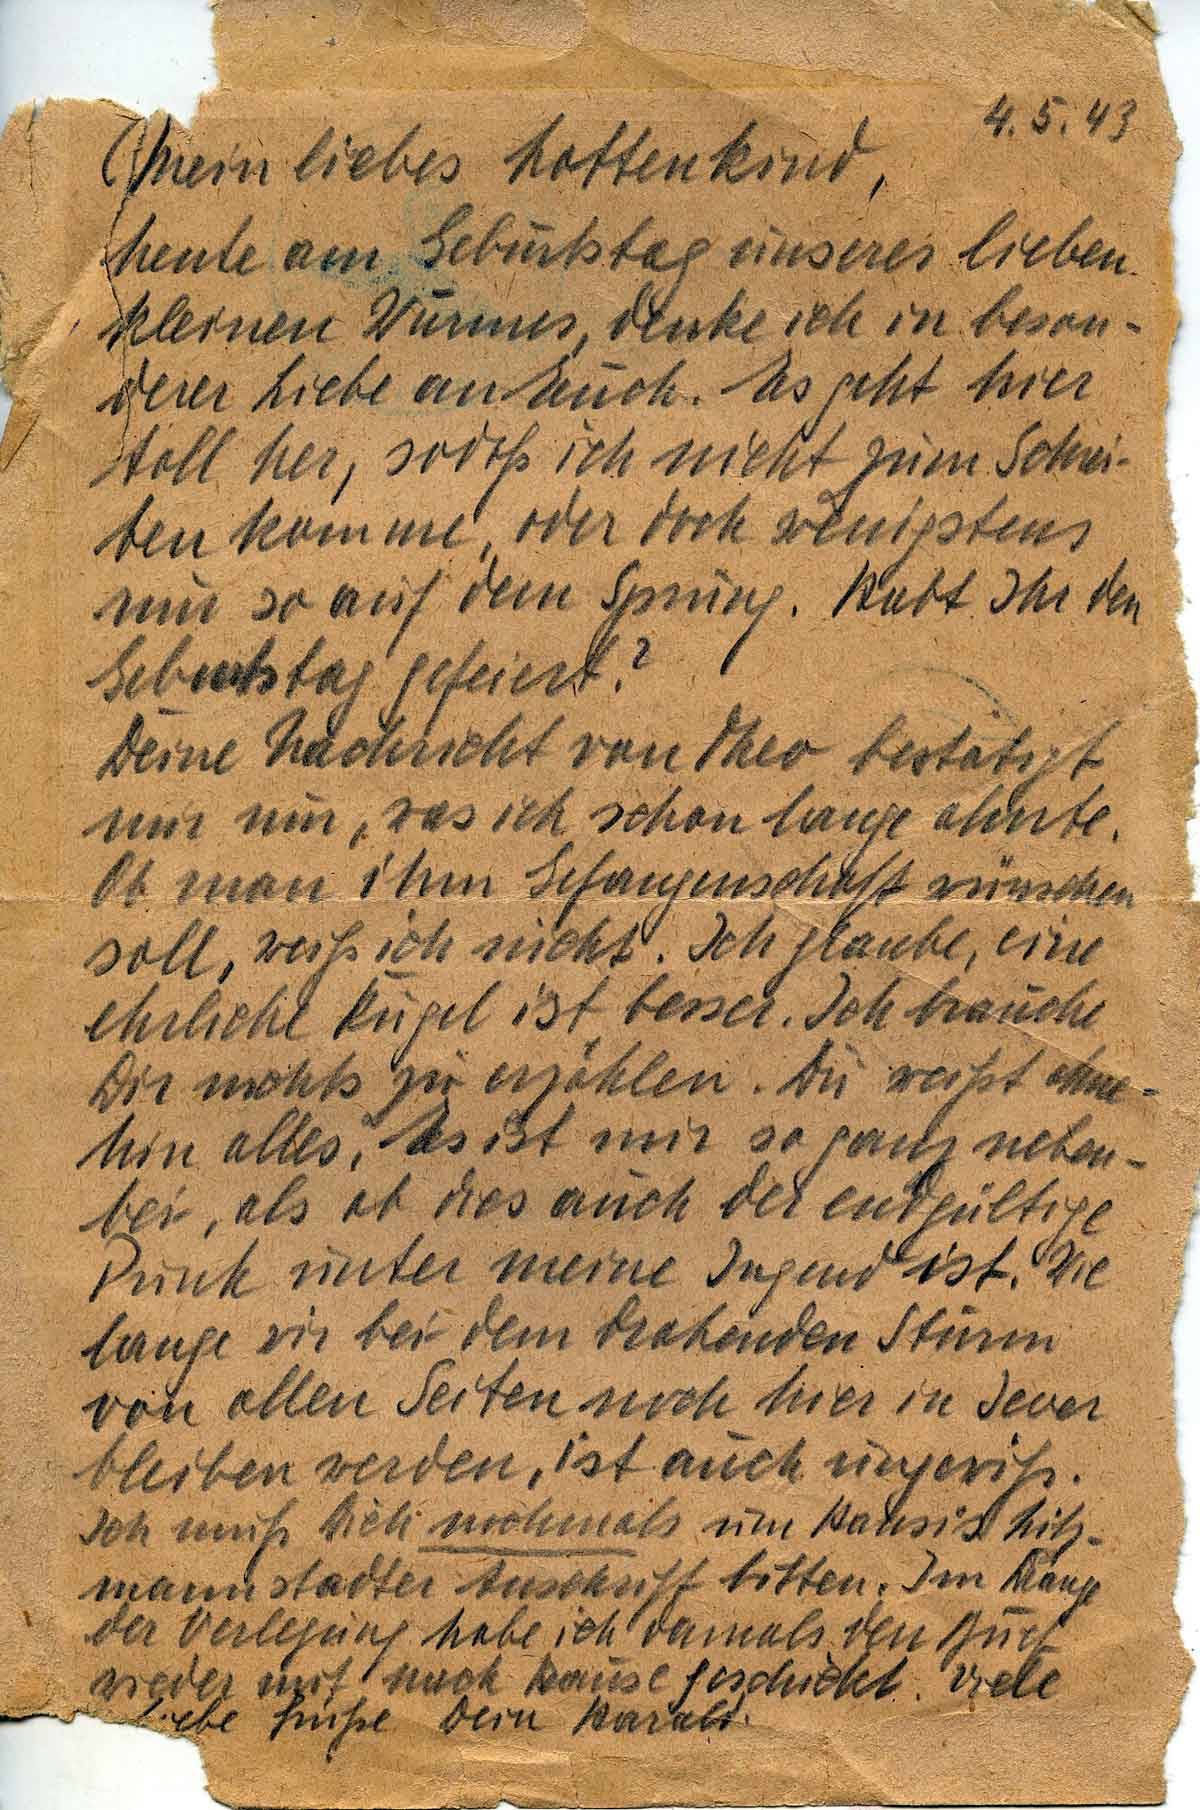 4. 5. 43
Mein liebes Lottenkind,
heute am Geburtstag unseres lieben
kleinen Wurmes, denke ich in beson-
derer Liebe an Euch. Es geht hier
toll her, sodaß ich nicht zum Schrei-
ben komme, oder doch wenigstens
nur so auf dem Sprung. Habt Ihr den
Geburtstag gefeiert?
Deine Nachricht von Theo bestätigt
mir nur, was ich schon lange ahnte.
Ob man ihm Gefangenschaft wünschen
soll, weiß ich nicht. Ich glaube, eine
ehrliche Kugel ist besser. Ich brauche
Dir nichts zu erzählen. Du weißt ohne-
hin alles. Es ist mir so ganz neben-
bei, als ob dies auch der endgültige
Punkt unter meine Jugend ist. Wie
lange wir bei dem drohenden Sturm
von allen Seiten noch hier in Jever
bleiben werden, ist auch ungewiß.
Ich muß Dich nochmals um Hansis Litz-
mannstadter Anschrift bitten. Im Drange
der Verlegung habe ich damals den
wieder mit nach Hause geschickt. Viele
liebe Grüße Dein Harald.